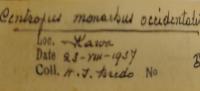 Centropus monachus occidentalis
Loc. Kawa
Date 23-VIII-1957
Coll. No